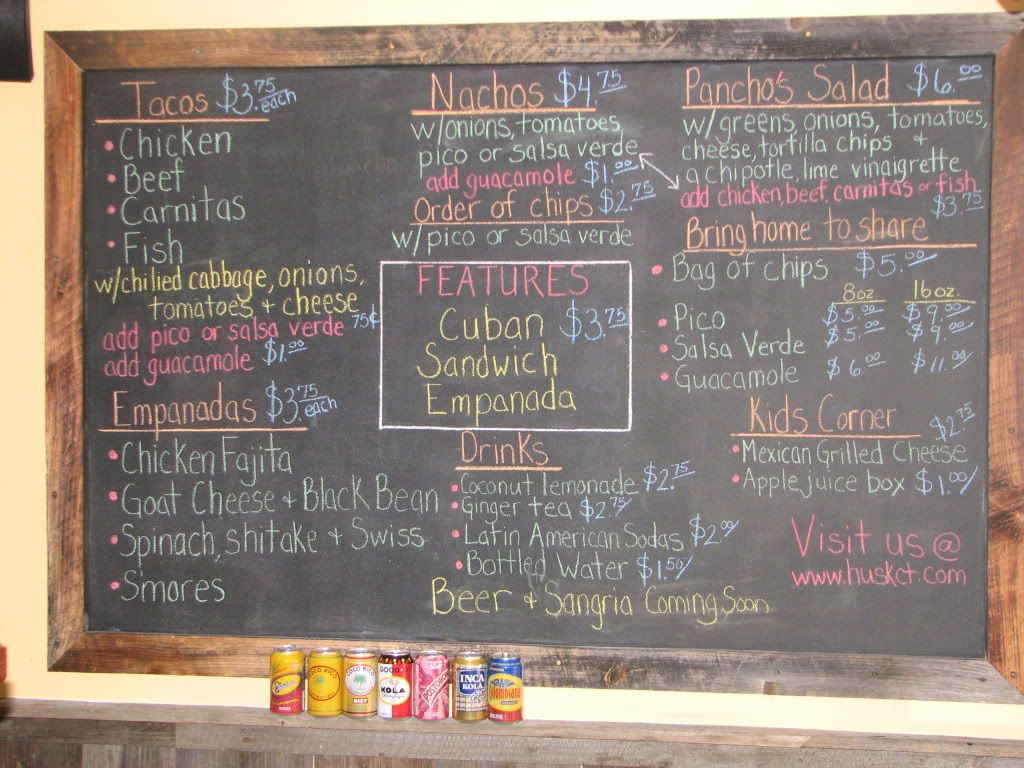 Tacos $3.75 each
• Chicken
• Beef
• Carnitas
• Fish
w/chilied cabbage, onions,
tomatoes + cheese
add pico or salsa verde 75¢
add guacamole $1.00
Empanadas $3.75 each
• Chicken Fajita
• Goat Cheese + Black Bean
• Spinach, shitake + Swiss
• S'mores
Nachos $4.75
w/onions, tomatoes,
pico or salsa verde
add guacamole $1.00
Order of chips $2.75
w/pico or salsa verde
FEATURES
Cuban $3.75
Sandwich
Empanada
Drinks
• Coconut lemonade $2.75
• Ginger tea $2.75/
• Latin American Sodas $2.00
• Bottled Water $1.50/
Beer + Sangria Coming Soon
Pancho's Salad $6.00
w/greens, onions, tomatoes,
cheese, tortilla chips +
a chipotle, lime vinaigrette
add chicken, beef, carnitas or fish
$3.75
Bring home to share
• Bag of chips $5.00
8oz 16oz
• Pico $5.00 $9.00
• Salsa Verde $5.00 $9.00
• Guacamole $6.00 $11.00
Kids Corner
$2.75
• Mexican Grilled Cheese
• Apple juice box $1.00/
Visit us @
www.huskct.com
COCO RICO
COCO RICO
DIET
GOOD
KOLA
INCA
KOLA
Colombiana